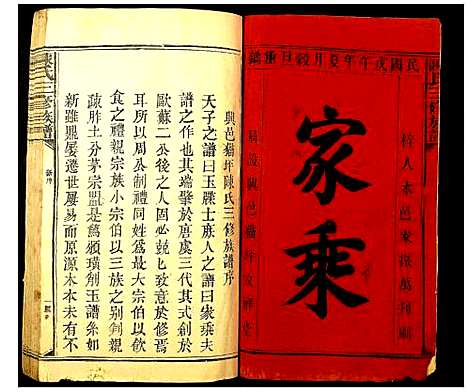 民國戊午年夏月穀旦重鐫
家乘
梓人本邑家振萬刊刷
興邑貓坪陳氏三修族譜序
天子之譜曰玉牒士庶人之譜曰家乘夫
譜之作也其端肇於唐虞三代其式創於
歐蘇二公後之人臣
致意於修焉
耳所以周公制禮同姓為最大宗伯以飲
食之禮親宗族小宗伯以三族之別
親
疏胙土分茅宗盟是萬頒璜劍玉譜糸如
新雖
屢遷世屢易而原源本本未有不
陳氏三修族譜